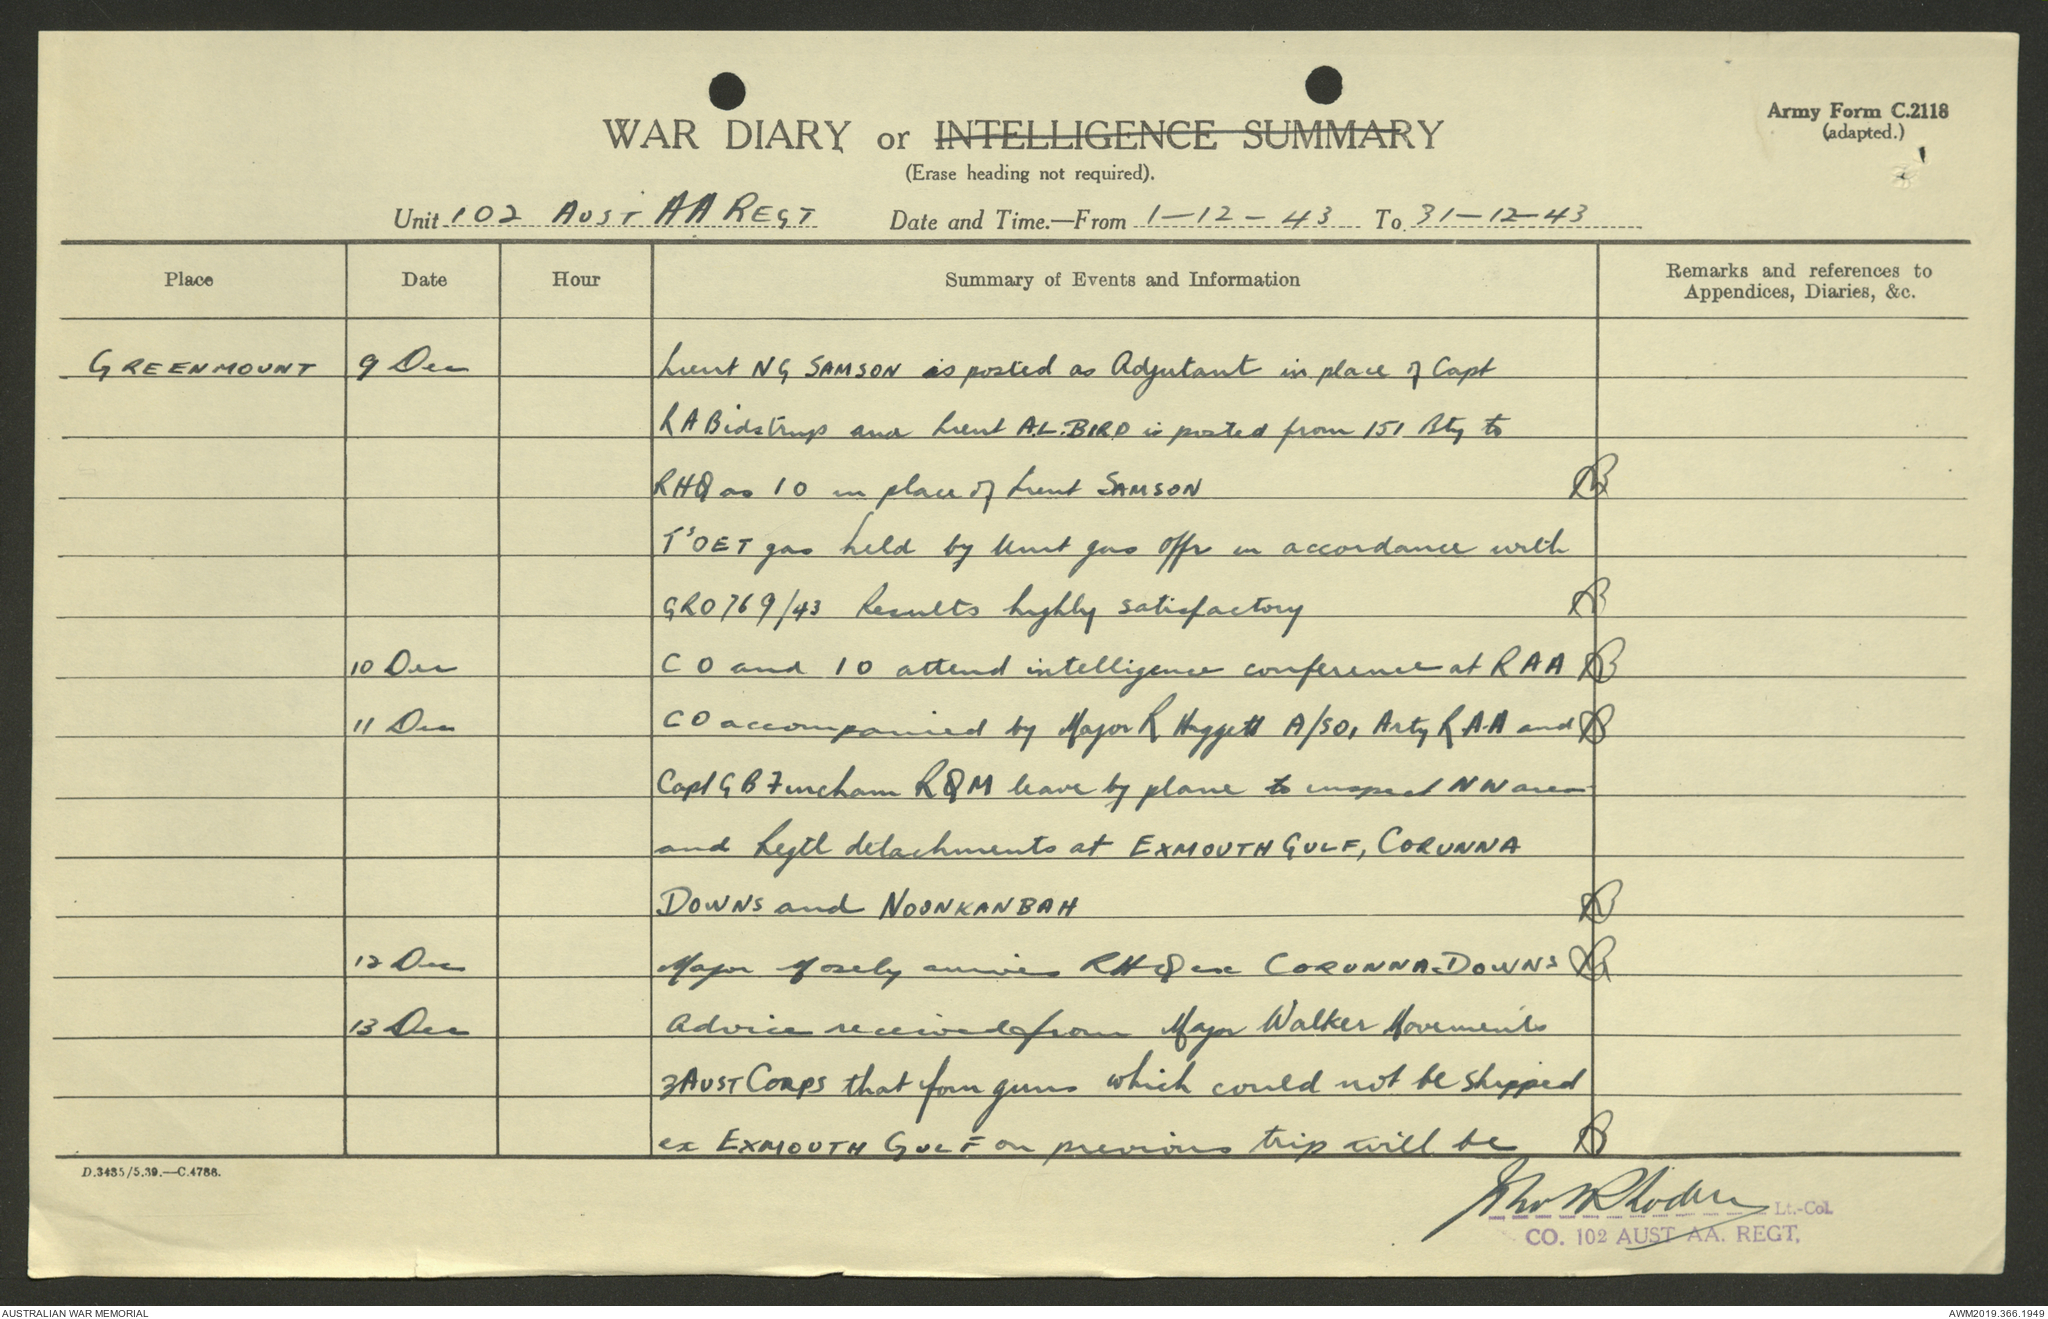 Army Form C.2118
(adapted.)
WAR DIARY or INTELLIGENCE SUMMARY
(Erase heading not required).
Unit 102 AUST AA REGT Date and Time.—From 1-12-43 To 31-12-43
Place Date Hour Summary of Events and Information Remarks and references to
Appendices, Diaries, &c.
GREENMOUNT 9 Dec Lieut NG SAMSON is posted as Adjutant in place of Capt
R A Bidstrup and Lieut A.L. BIRD is posted from 151 Bty to
RHQ as IO in place of Lieut SAMSON
T'sOET gas held by Unit gas Offr in accordance with
GRO 769/43 Results highly satisfactory
10 Dec CO and IO attend intelligence conference at RAA
11 Dec CO accompanied by Major R Huggett A/SO, Arty RAA and
Capt G B Fincham RQM leave by plane to inspect NW area
and Regtl detachments at EXMOUTH GULF, CORUNNA
DOWNS and NOONKANBAH
12 Dec Major Mosely arrives RHQ ex CORUNNA DOWNS
13 Dec Advice received from Major Walker Movements
3 AUST CORPS that four guns which could not be shipped
ex EXMOUTH GULF on previous trip will be
D.3435/5.39.—C.4786.
Lt.-Col.
CO. 102 AUST AA. REGT,
AUSTRALIAN WAR MEMORIAL AWM2019.366.1949